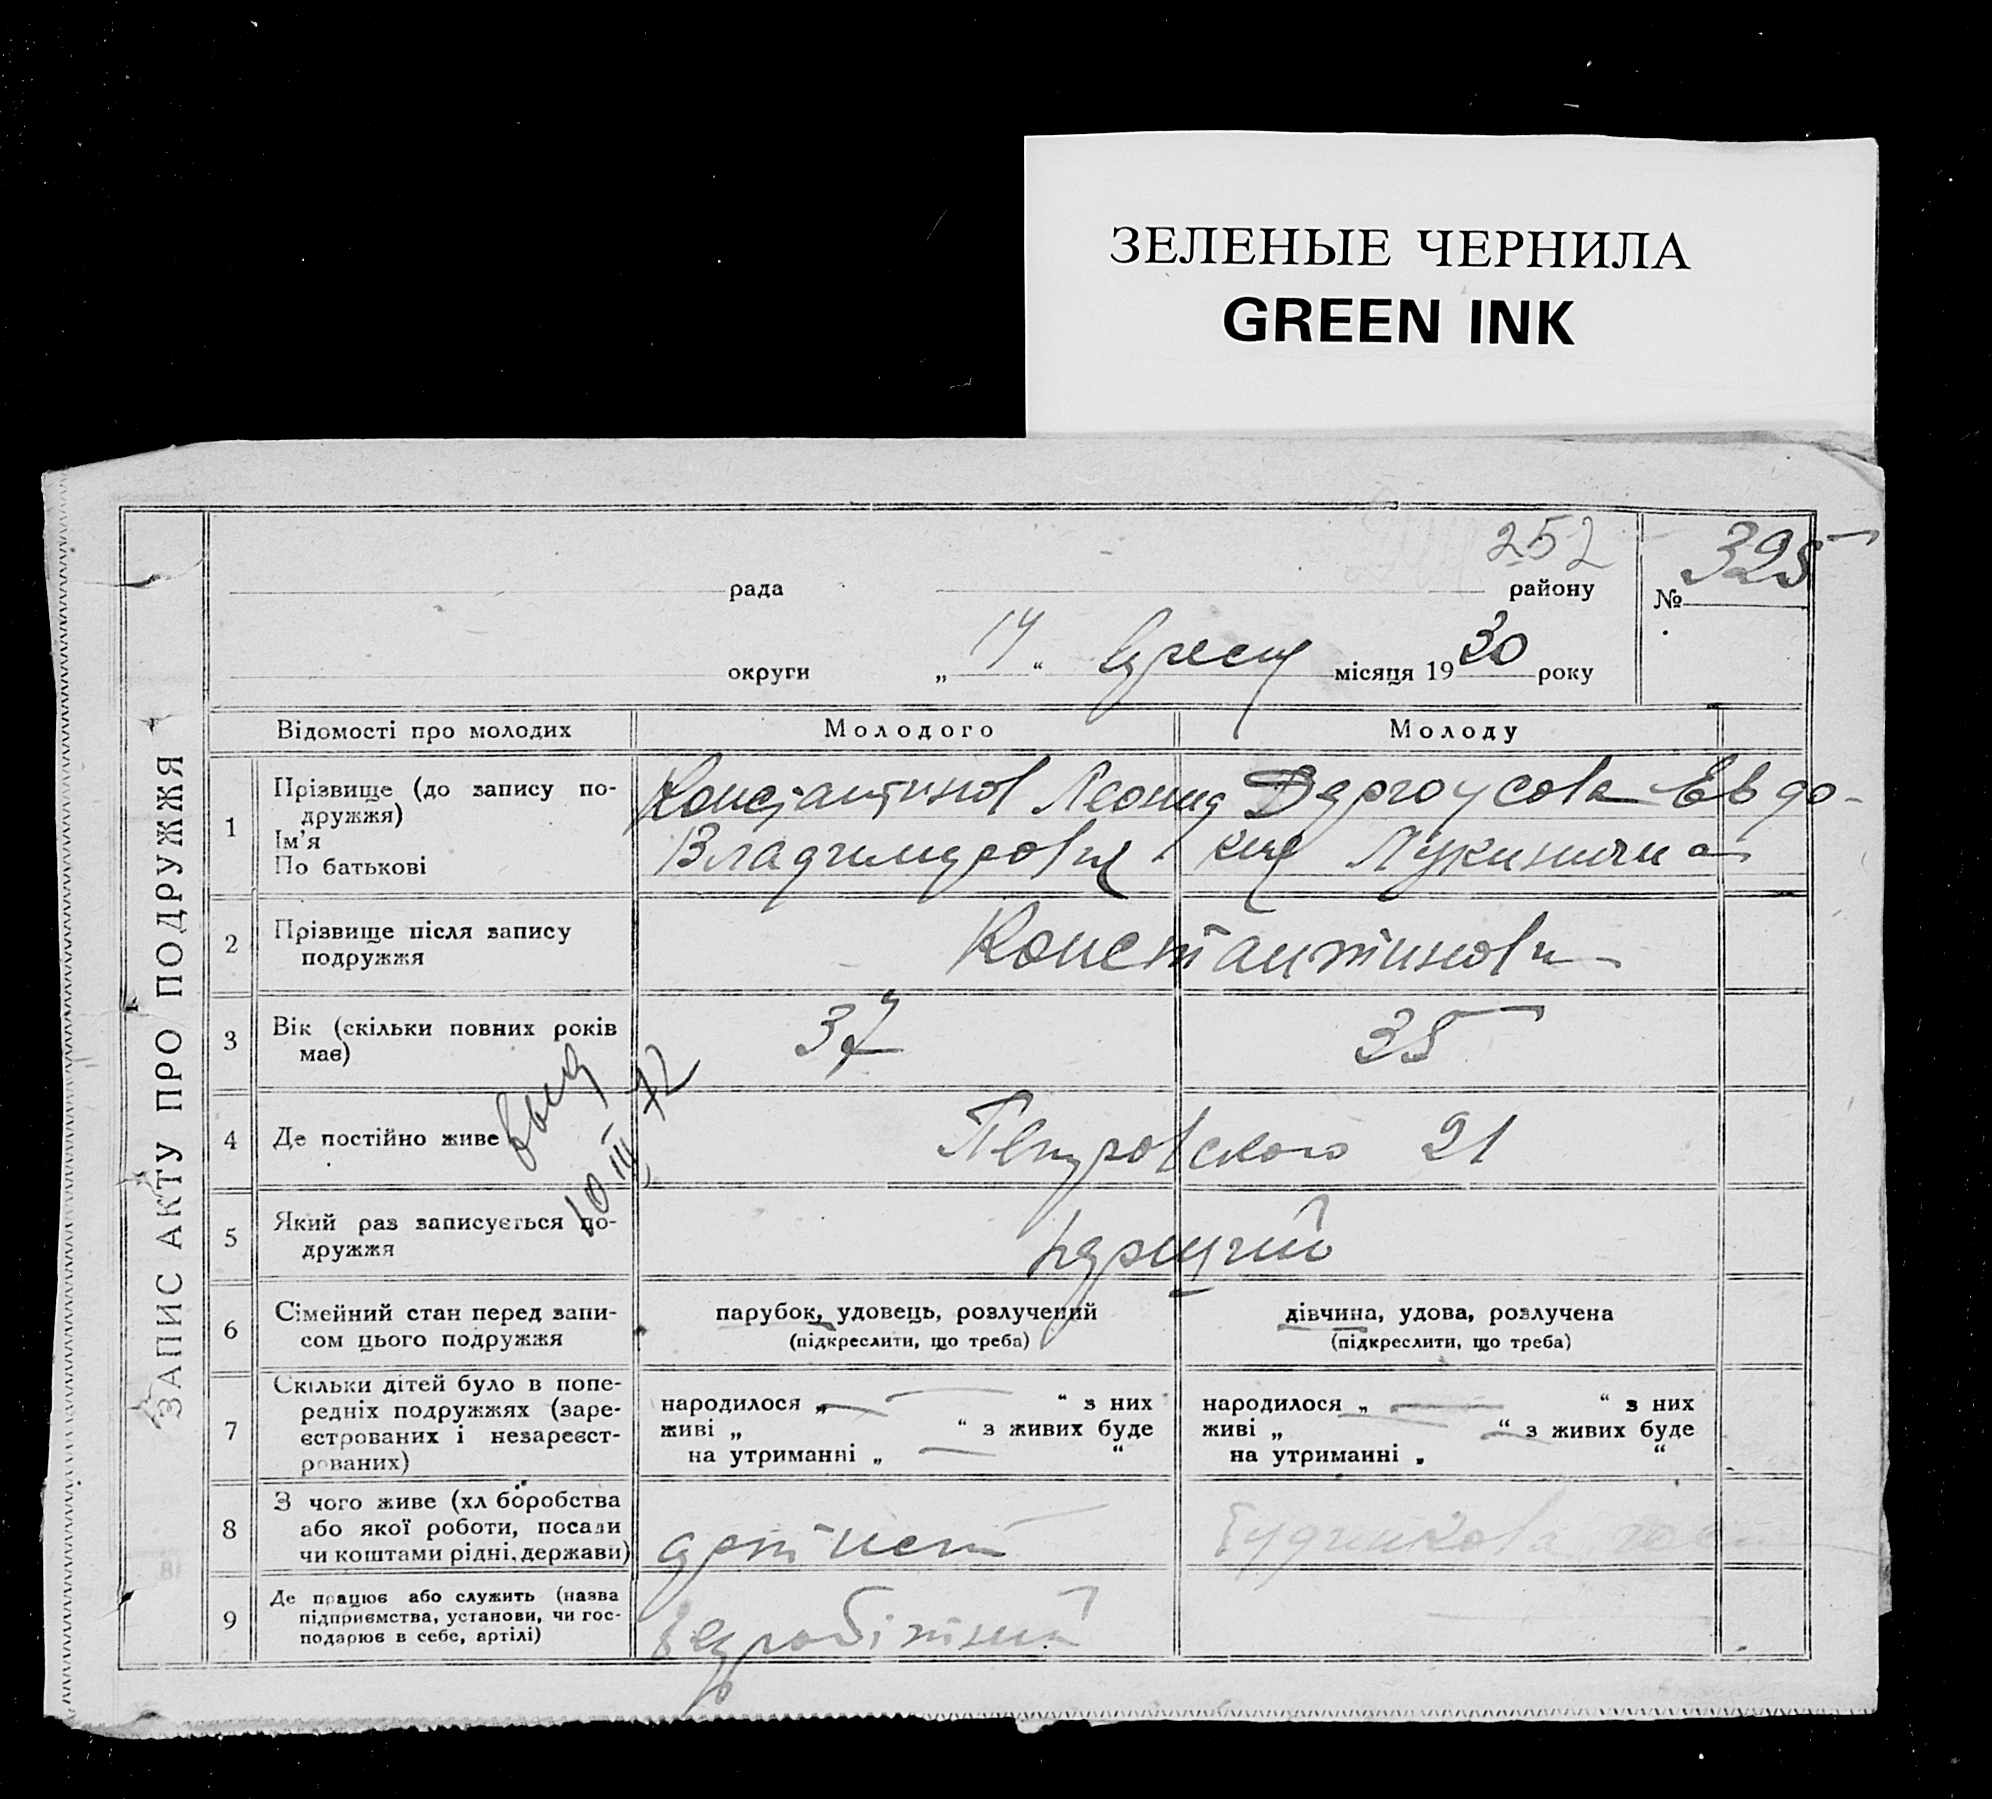 ЗЕЛЕНЫЕ ЧЕРНИЛА
GREEN INK
ЗАПИС АКТУ ПРО ПОДРУЖЖЯ
252
рада району № 325
округи „ 14 “ вресня місяця 1930 року
Відомості про молодих Молодого Молоду
1 Прізвище (до запису по-
дружжя)
Ім'я
По батькові
Константинов Леонид
Владимирович
Дергоусова Евдо-
кия Лукинична
2 Прізвище після запису
подружжя
Константинови
3 Вік (скільки повних років
має)
37 35
4 Де постійно живе
Петровского 21
10 III 72
5 Який раз записується по-
дружжя
перший
6 Сімейний стан перед запи-
сом цього подружжя
парубок, удовець, розлучений
(підкреслити, що треба)
дівчина, удова, розлучена
(підкреслити, що треба)
7 Скільки дітей було в попе-
редніх подружжях (заре-
єстрованих і незареєст-
рованих)
народилося „ — “ з них
живі „ “ з живих буде
на утриманні „ — “
народилося „ — “ з них
живі „ — “ з живих буде
на утриманні „ “
8 З чого живе (хл боробства
або якої роботи, посади
чи коштами рідні, держави)
артист
9 Де працює або служить (назва
підприємства, установи, чи гос-
подарює в себе, артілі)
безробітний